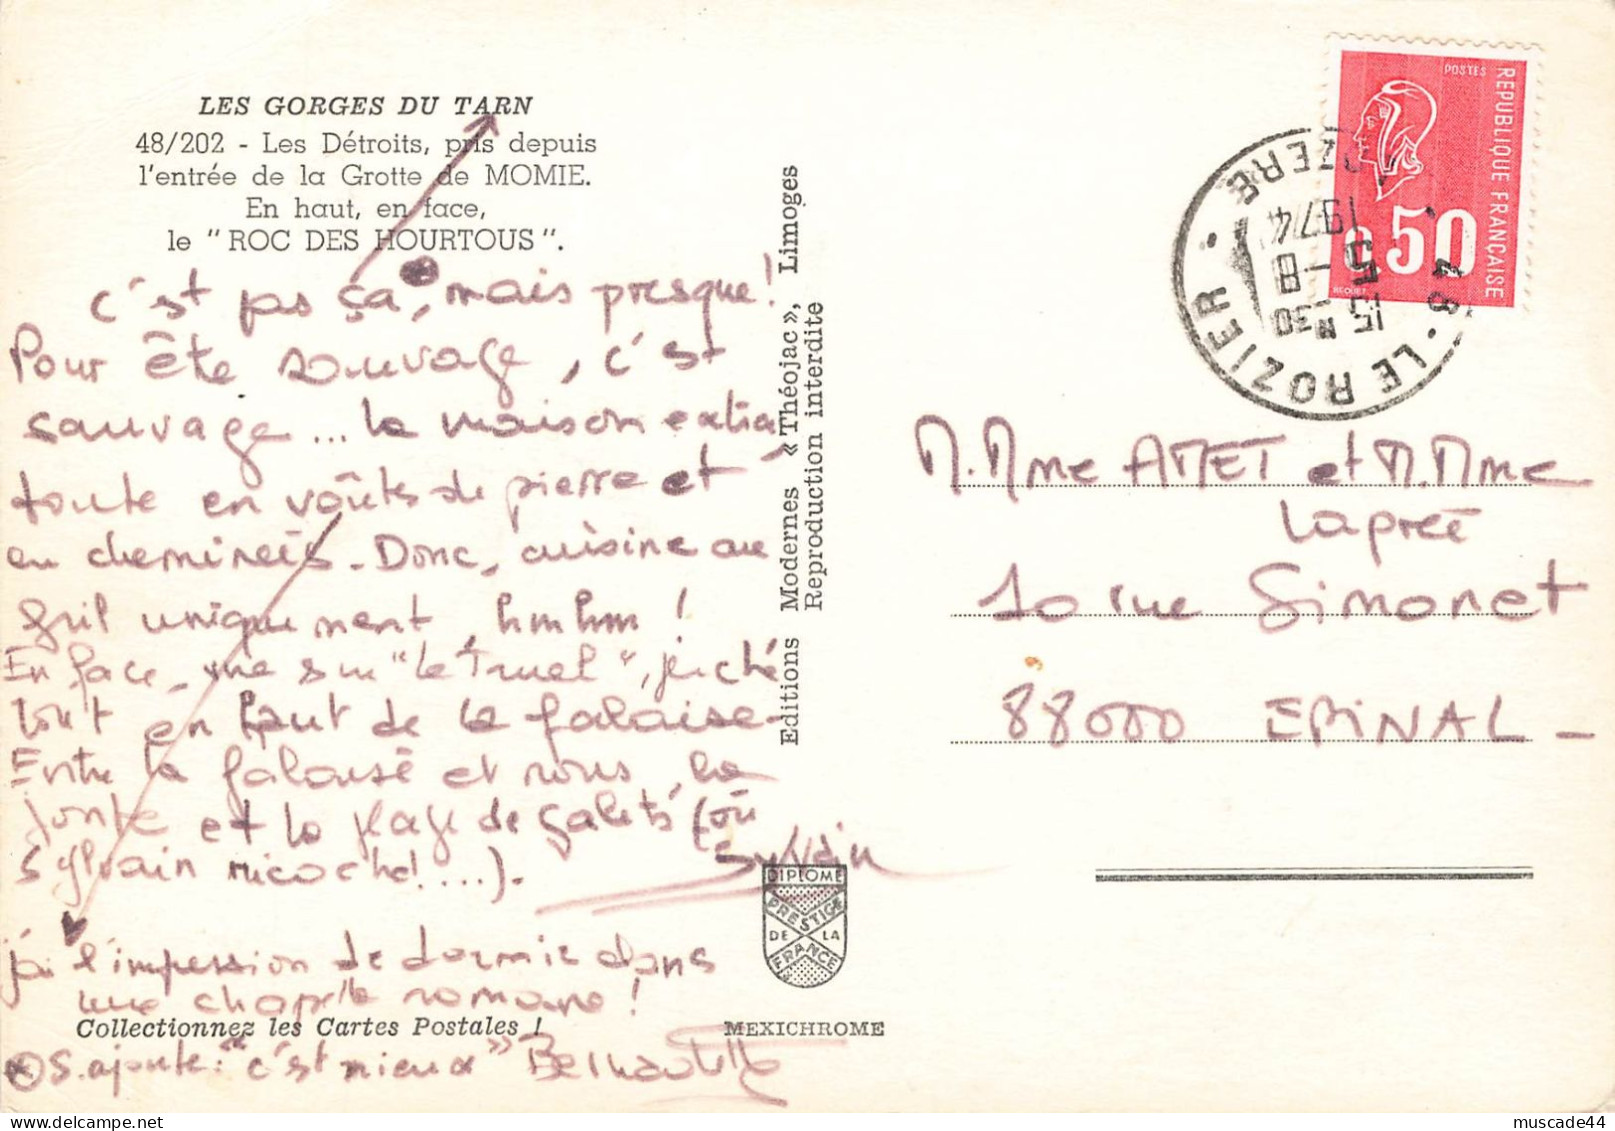 LES GORGES DU TARN
48/202 - Les Détroits, pris depuis
l'entrée de la Grotte de MOMIE.
En haut, en face,
le "ROC DES HOURTOUS".
c'est pas ça, mais presque!
Pour être sauvage, c'est
sauvage... la maison est
toute en voûtes de pierre et
en cheminées. Donc, cuisine au
gril uniquement, hmhm!
En face, vue sur "le Truel", juché
tout en haut de la falaise.
Entre la falaise et nous, la
Jonte et la plage de galets (où
Sylvain ricoche!....).
Sylvain
j'ai l'impression de dormir dans
une chapelle romane!
Collectionnez les Cartes Postales !
S. ajoute: "c'est mieux" Bernadette
Editions Modernes «Théojac», Limoges
Reproduction interdite
DIPLOME
PRESTIGE
DE LA
FRANCE
MEXICHROME
POSTES
REPUBLIQUE FRANÇAISE
0,50
BEQUET
48 - LE ROZIER - LOZERE
15 H30
5 - 8
1974
M. Mme AMET et M. Mme
Lapreé
10 rue Simonet
88000 EPINAL -
muscade44